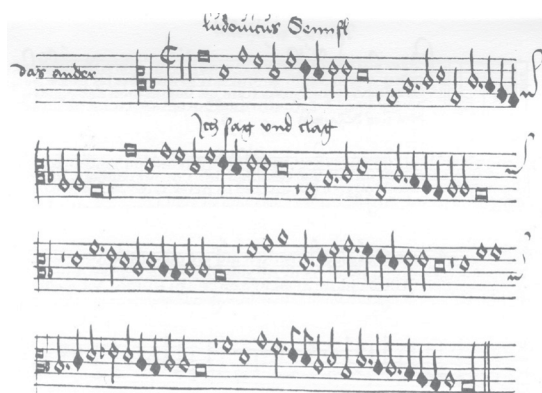 Ludouicus Sennfl
das ander
Ich sag vnd clag